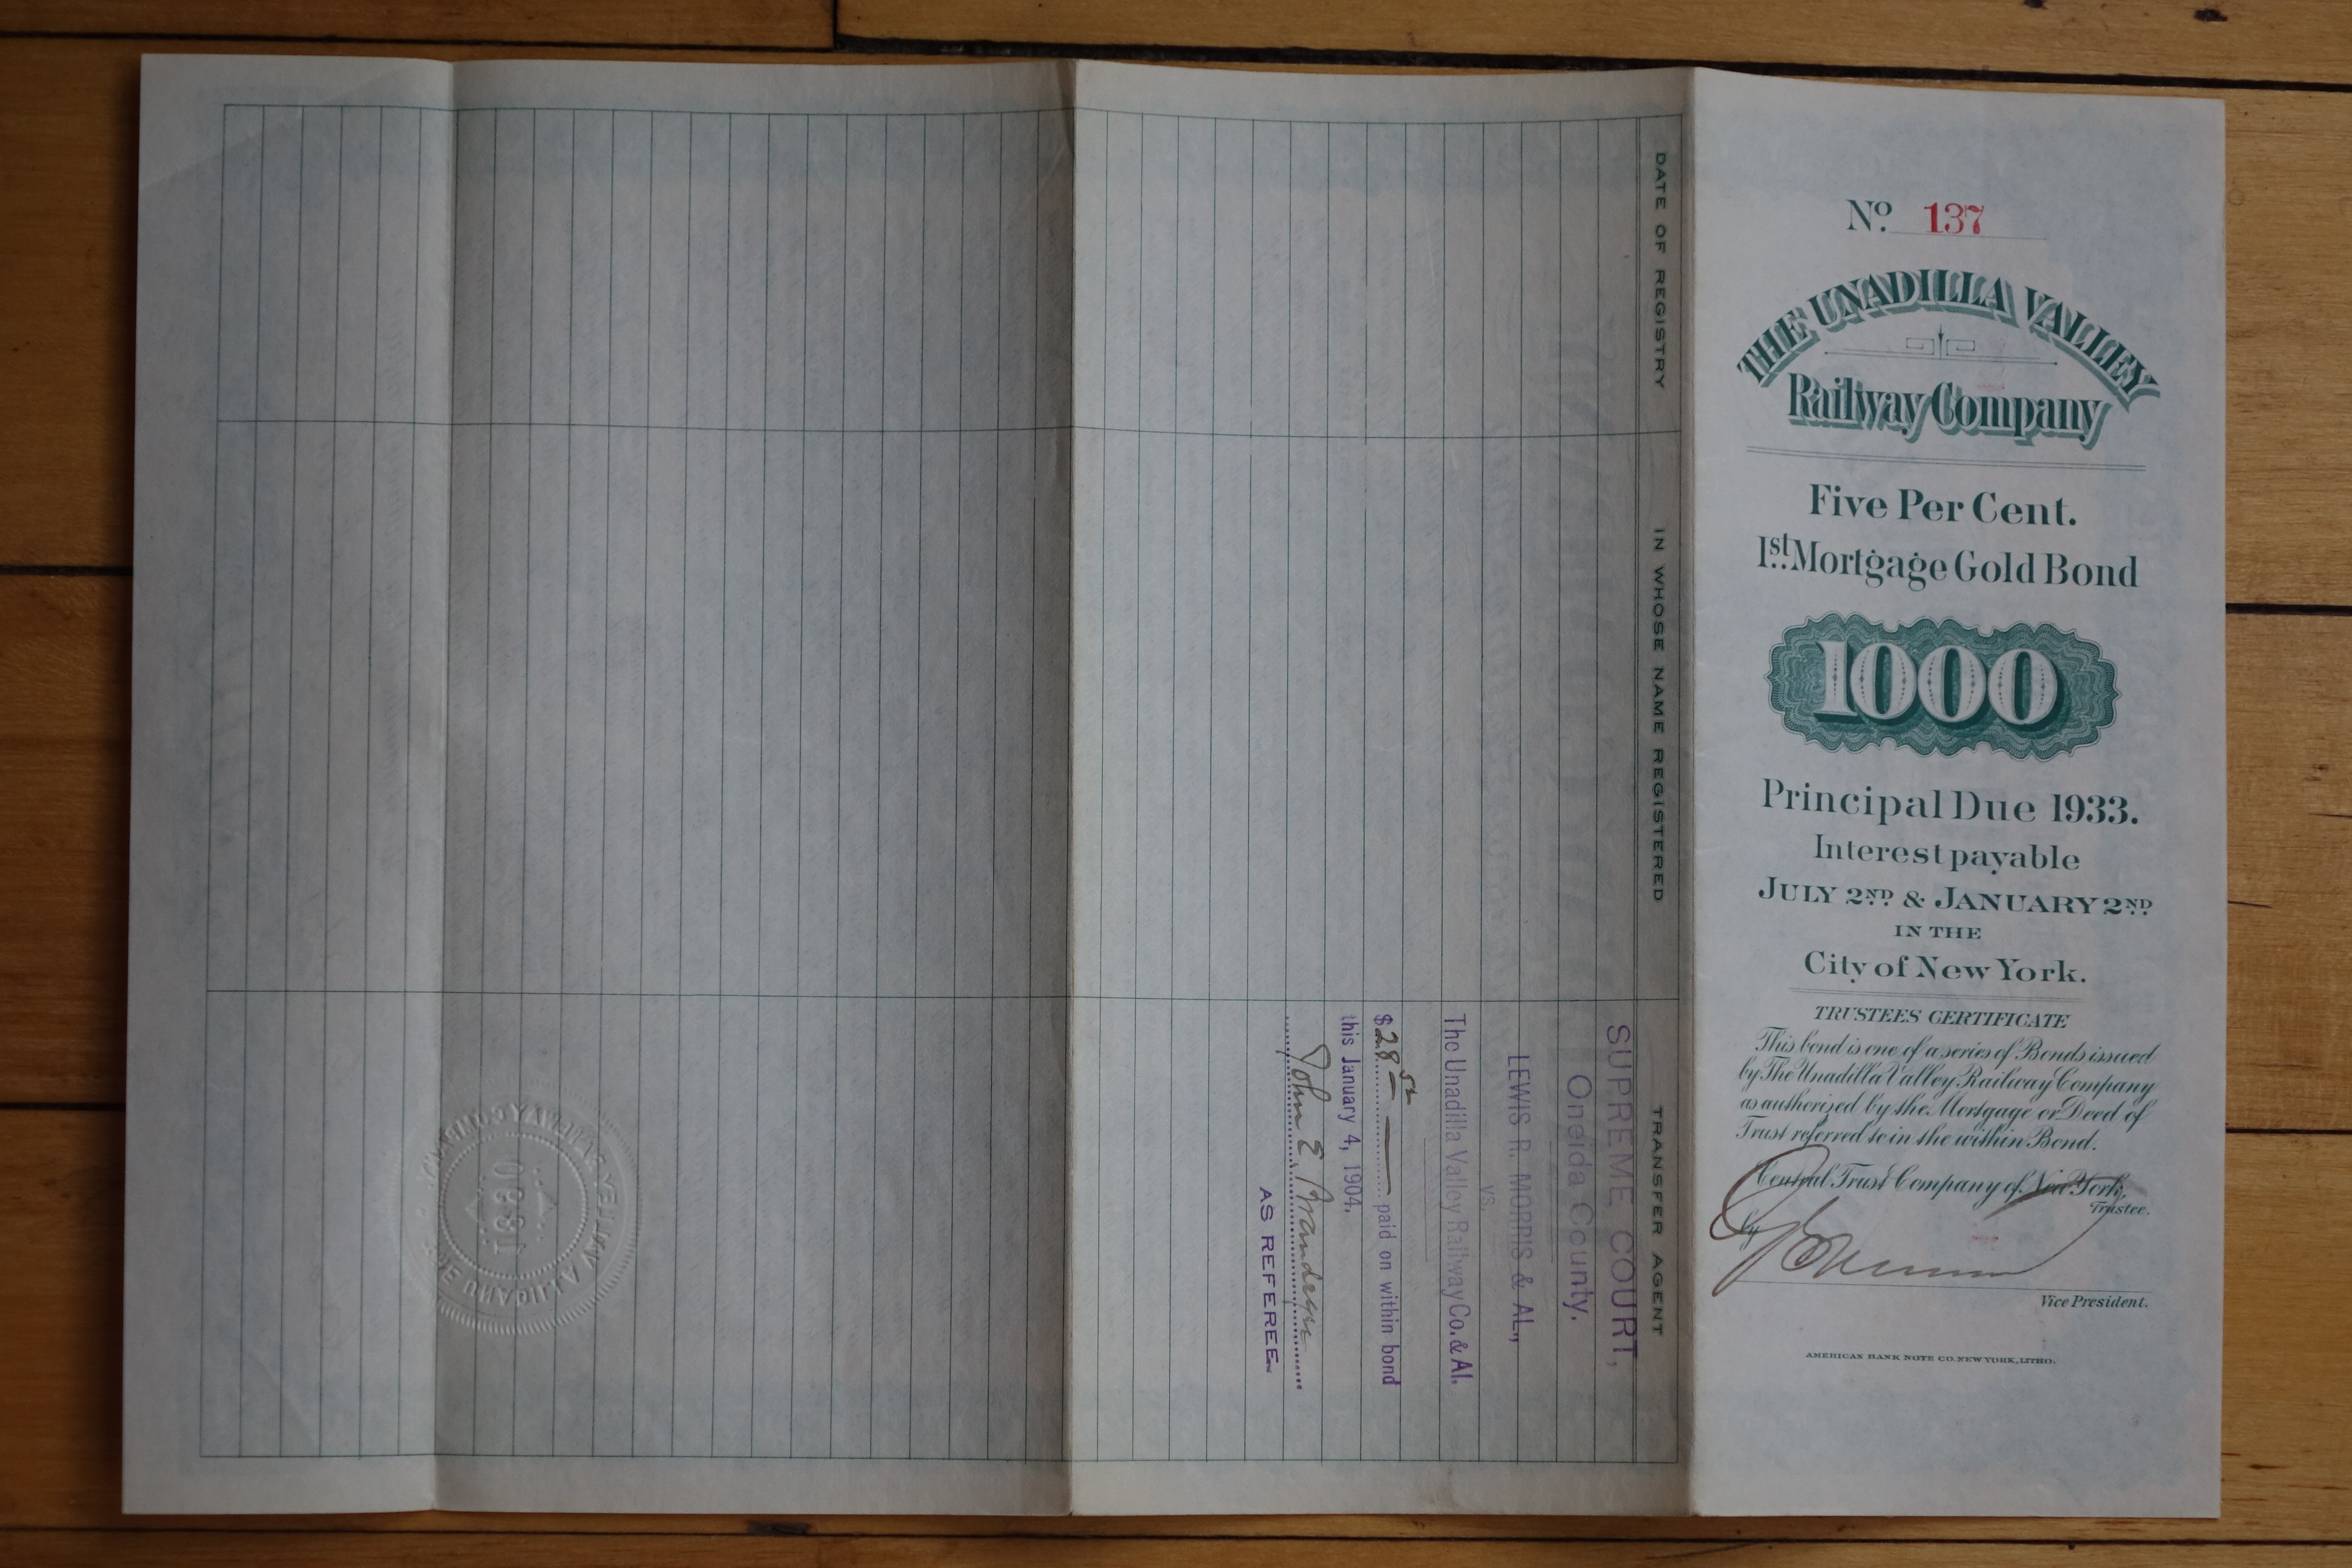 DATE OF REGISTRY
IN WHOSE NAME REGISTERED
TRANSFER AGENT
SUPREME COURT,
Oneida County.
LEWIS R. MORRIS & AL.,
vs.
The Unadilla Valley Railway Co. & Al.
$28 52 paid on within bond
this January 4, 1904.
John E. Brandegee
AS REFEREE.
No. 137
THE UNADILLA VALLEY
Railway Company
Five Per Cent.
1st Mortgage Gold Bond
1000
Principal Due 1933.
Interest payable
JULY 2ND & JANUARY 2ND
IN THE
City of New York.
TRUSTEES CERTIFICATE
This bond is one of a series of Bonds issued
by The Unadilla Valley Railway Company
as authorized by the Mortgage or Deed of
Trust referred to in the within Bond.
Central Trust Company of New York,
Trustee.
By
Vice President.
AMERICAN BANK NOTE CO. NEW YORK, LITHO.